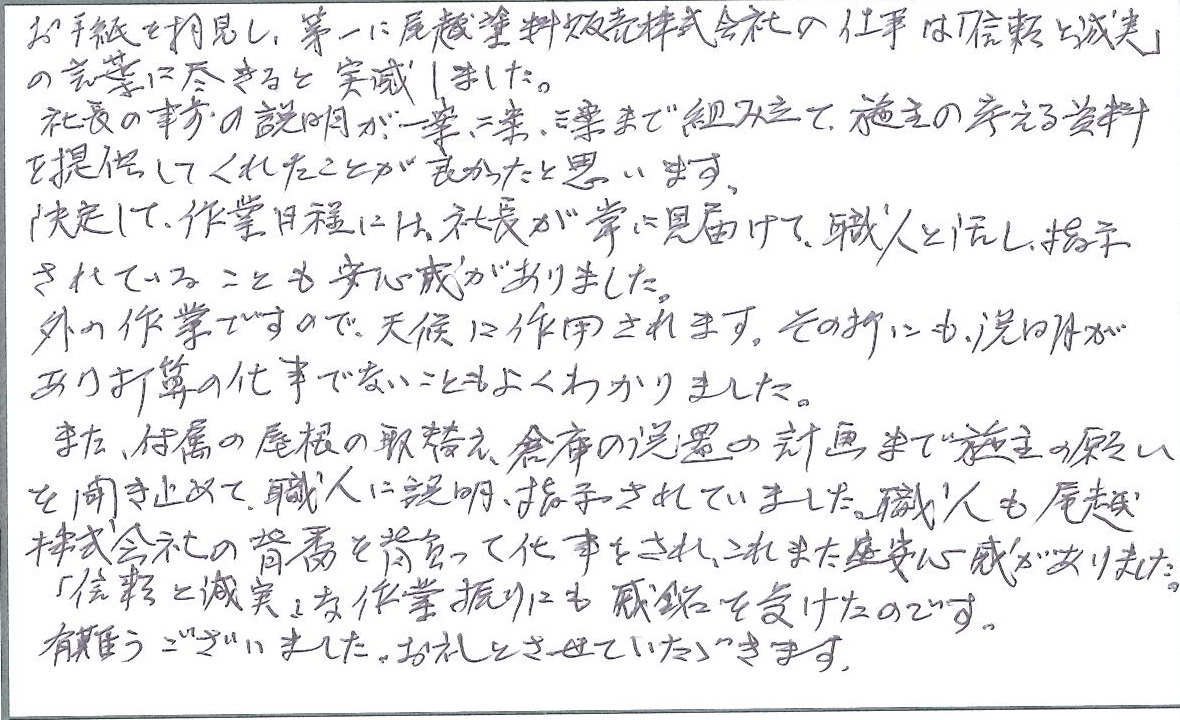 お手紙を拝見し、第一に尾越塗料販売株式会社の仕事は「信頼と誠実」
の言葉に尽きると実感しました。
社長の事前の説明が一案、二案、三案まで組み立て、施主の考える資料
を提供してくれたことが良かったと思います。
決定して、作業日程には、社長が常に見届けて、職人と話し、指示
されていることも安心感がありました。
外の作業ですので、天候に作用されます。その折にも、説明が
あり打算の仕事でないこともよくわかりました。
また、付属の屋根の取替え、倉庫の設置の計画まで施主の願い
を聞き止めて、職人に説明、指示されていました。職人も尾越
株式会社の背番を背負って仕事をされ、これまた安心感がありました。
「信頼と誠実」な作業振りにも感銘を受けたのです。
有難うございました。お礼とさせていただきます。